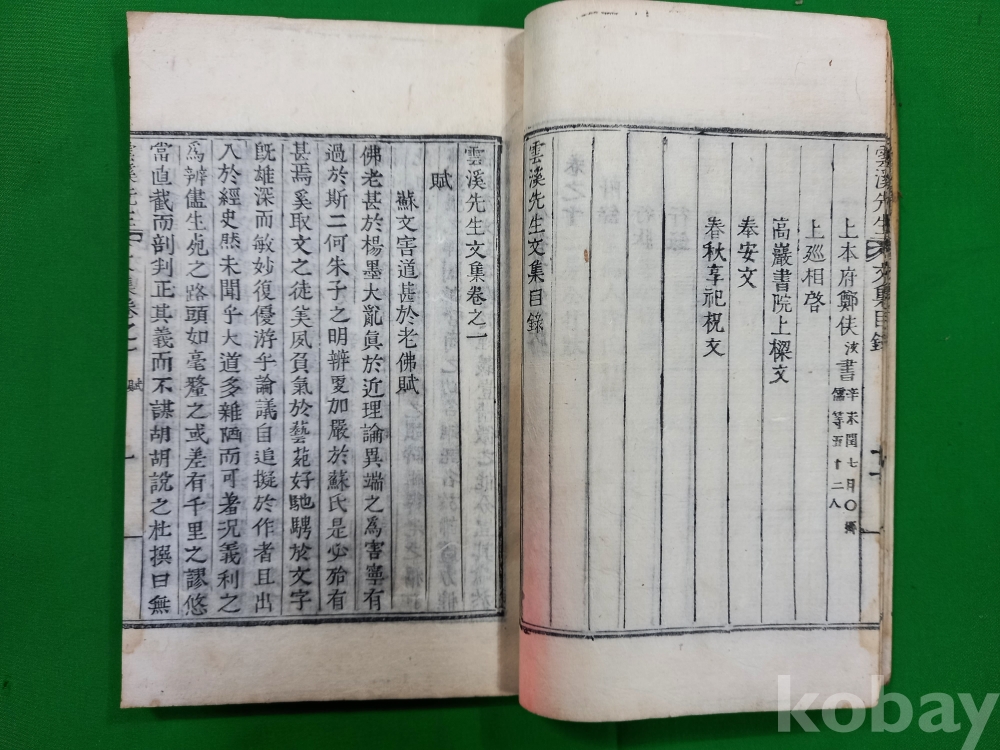 雲溪先生文集目錄
上本府鄭侠書
辛未閏七月〇鄉
儒等五十二人
上廵相啓
高巖書院上樑文
奉安文
春秋享祀祝文
雲溪先生文集目錄
雲溪先生文集卷之一
賦
蘇文害道甚於老佛賦
佛老甚於楊墨大亂眞於近理論異端之爲害寧有
過於斯二何朱子之明辨更加嚴於蘇氏是必殆有
甚焉奚取文之徒美夙負氣於藝苑好馳騁於文字
旣雄深而敏妙復優游乎論議自追擬於作者且出
入於經史然未聞乎大道多雜陋而可著况義利之
爲辨儘生死之路頭如毫釐之或差有千里之謬悠
當直截而剖判正其義而不謀胡胡說之杜撰曰無
雲溪先生文集卷之一
賦
一
kobay